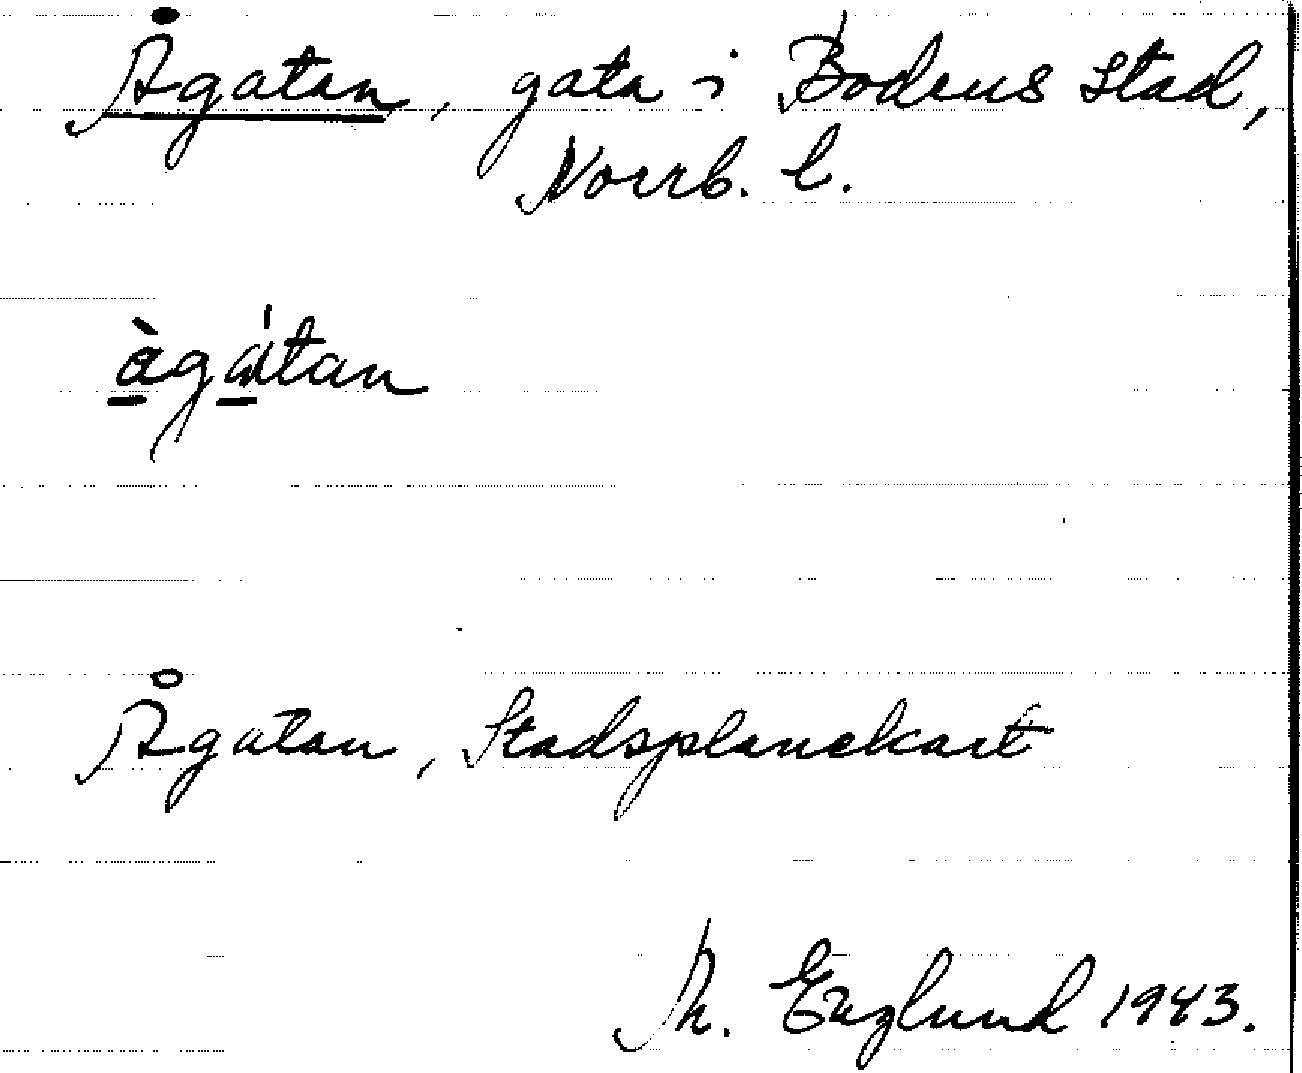 Ågatan, gata i Bodens stad,
Norrb. l.
àgátan
Ågatan, Stadsplanekart
Th. Englund 1943.